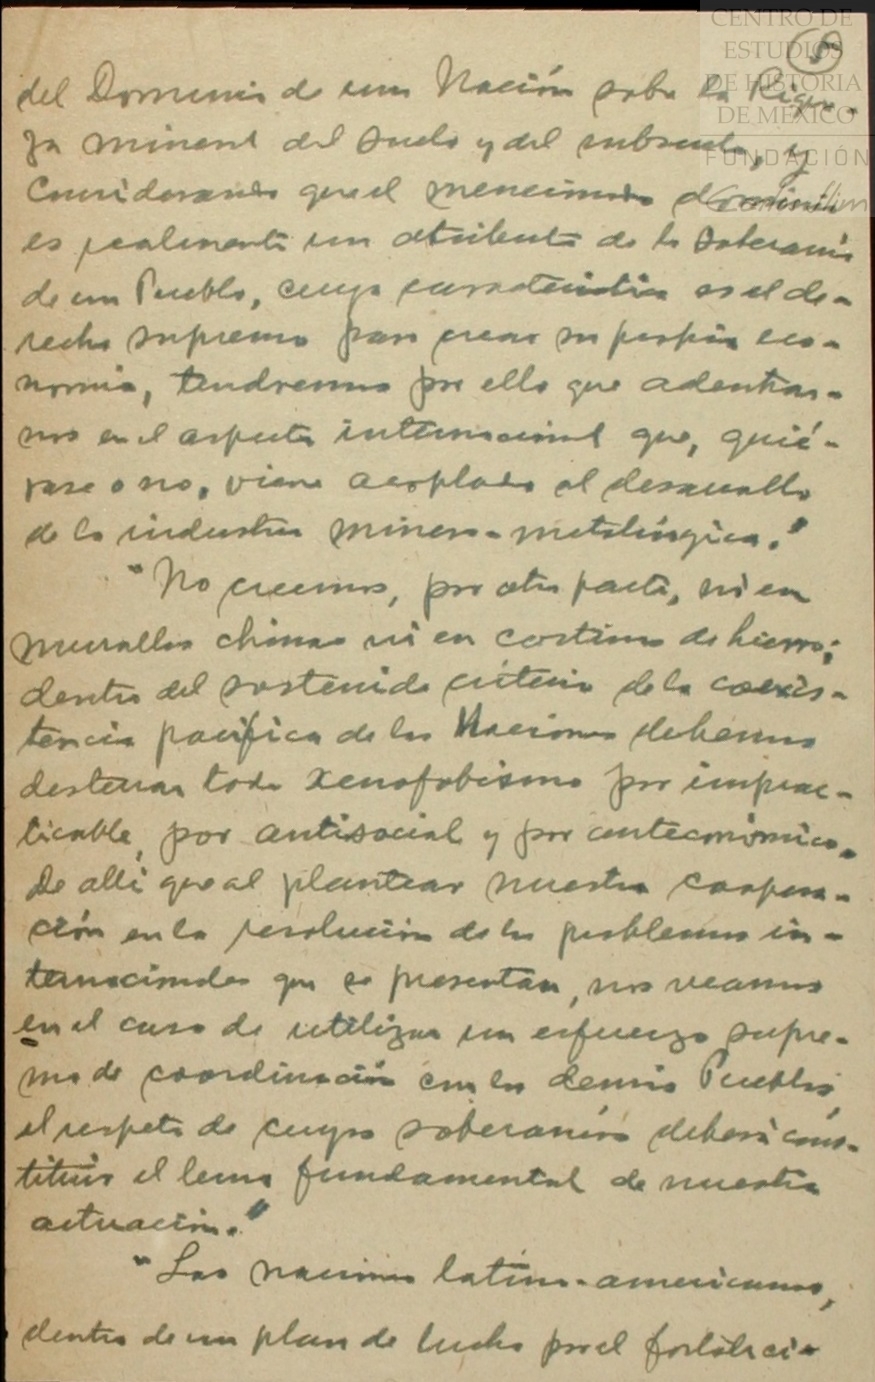 CENTRO DE
ESTUDIOS
DE HISTORIA
DE MÉXICO
FUNDACIÓN
del Dominio de una Nación sobre la Rique-
za mineral del suelo y del subsuelo, y
Considerando que el mencionado dominio
es realmente un atributo de la Soberanía
de un Pueblo, cuya característica es el de-
recho supremo para crear su propia eco-
nomía, tendremos por ello que adentrar-
nos en el aspecto internacional que, quié-
rase o no, viene acoplado al desarrollo
de la industria minero-metalúrgica."
"No creemos, por otra parte, ni en
murallas chinas ni en cortinas de hierro;
dentro del sostenido criterio de la coexis-
tencia pacífica de las Naciones debemos
desterrar todo xenofobismo por imprac-
ticable, por antisocial y por anteconómico.
De allí que al plantear nuestra coopera-
ción en la resolución de los problemas in-
ternacionales que se presentan, nos veamos
en el caso de utilizar un esfuerzo supre-
mo de coordinación con los demás Pueblos,
el respeto de cuyas soberanías deberá cons-
tituir el lema fundamental de nuestra
actuación."
"Las naciones latino-americanas,
dentro de un plan de lucha por el fortaleci-